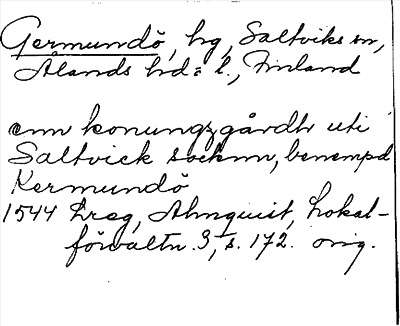 Germundö, hg, Saltviks sn,
Ålands hd=l., Finland
enn konungzgårdh uti
Saltvick socknn, benempd
Kermundö
1544 Dreg, Almquist, Lokal-
förvaltn. 3, s. 172. orig.